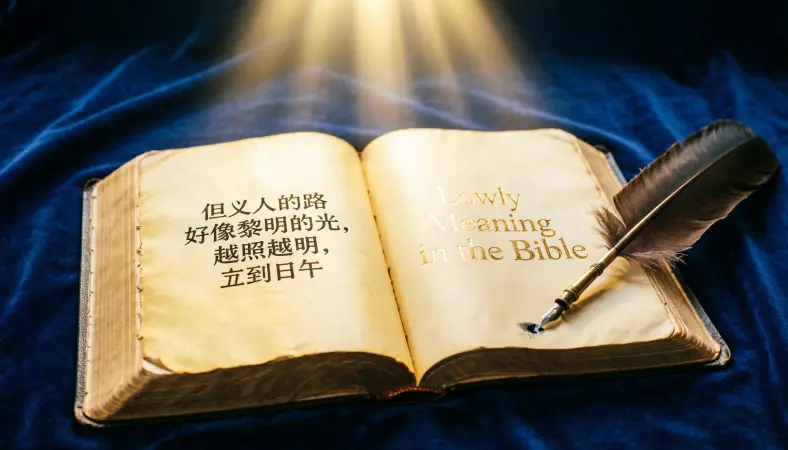 但义人的路
好像黎明的光，
越照越明，
立到日午
Lowly
Meaning
in the Bible